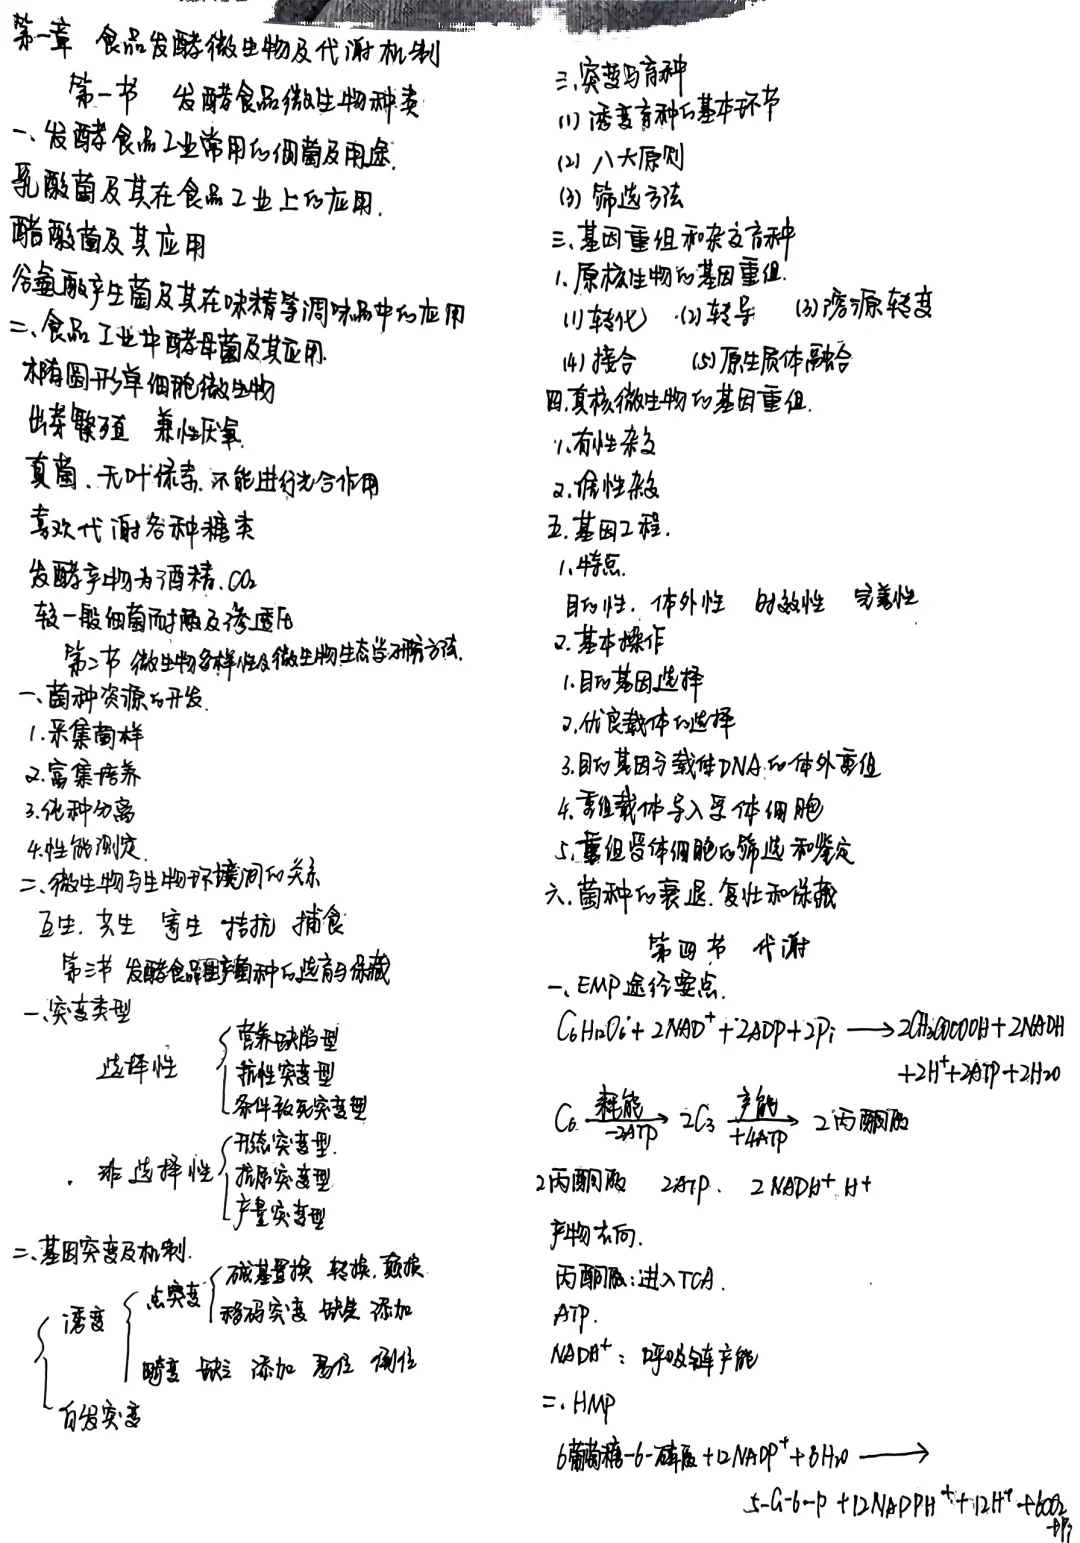 第一章 食品发酵微生物及代谢机制
第一节 发酵食品微生物种类
一、发酵食品工业常用的细菌及用途.
乳酸菌及其在食品工业上的应用.
醋酸菌及其应用
谷氨酸产生菌及其在味精等调味品中的应用
二、食品工业中酵母菌及其应用.
椭圆形单细胞微生物
出芽繁殖 兼性厌氧.
真菌、无叶绿素、不能进行光合作用
喜欢代谢各种糖类
发酵产物为酒精、CO2
较一般细菌耐酸及渗透压
第二节 微生物多样性及微生物生态学研究方法.
一、菌种资源的开发.
1.采集菌样
2.富集培养
3.纯种分离
4.性能测定.
二、微生物与生物环境间的关系
互生. 共生 寄生 拮抗 捕食
第三节 发酵食品生产菌种的选育与保藏
一、突变类型
选择性
营养缺陷型
抗性突变型
条件致死突变型
非选择性
形态突变型.
抗原突变型
产量突变型
二、基因突变及机制.
诱变
点突变
碱基置换 转换.颠换
移码突变 缺失 添加
畸变 缺失 添加 易位 倒位
自发突变
三、突变与育种
(1) 诱变育种的基本环节
(2) 八大原则
(3) 筛选方法
三.基因重组和杂交育种
1.原核生物的基因重组.
(1)转化 (2)转导 (3)溶源转变
(4)接合 (5)原生质体融合
四.真核微生物的基因重组.
1.有性杂交
2.准性杂交
五.基因工程.
1.特点.
目的性. 体外性 时效性 完善性
2.基本操作
1.目的基因选择
2.优良载体的选择
3.目的基因与载体DNA的体外重组
4.重组载体导入受体细胞
5.重组受体细胞的筛选和鉴定
六.菌种的衰退.复壮和保藏
第四节 代谢
一、EMP途径要点.
C6H12O6+2NAD⁺+2ADP+2Pi → 2CH3COCOOH+2NADH
+2H⁺+2ATP+2H2O
C6 耗能 -2ATP → 2C3 产能 +4ATP → 2丙酮酸
2丙酮酸 2ATP. 2NADH⁺ H⁺
产物去向.
丙酮酸:进入TCA.
ATP.
NADH⁺: 呼吸链产能
二. HMP
6葡萄糖-6-磷酸+12NADP⁺+8H2O →
5-G-6-P+12NADPH⁺+12H⁺+6CO2
+Pi